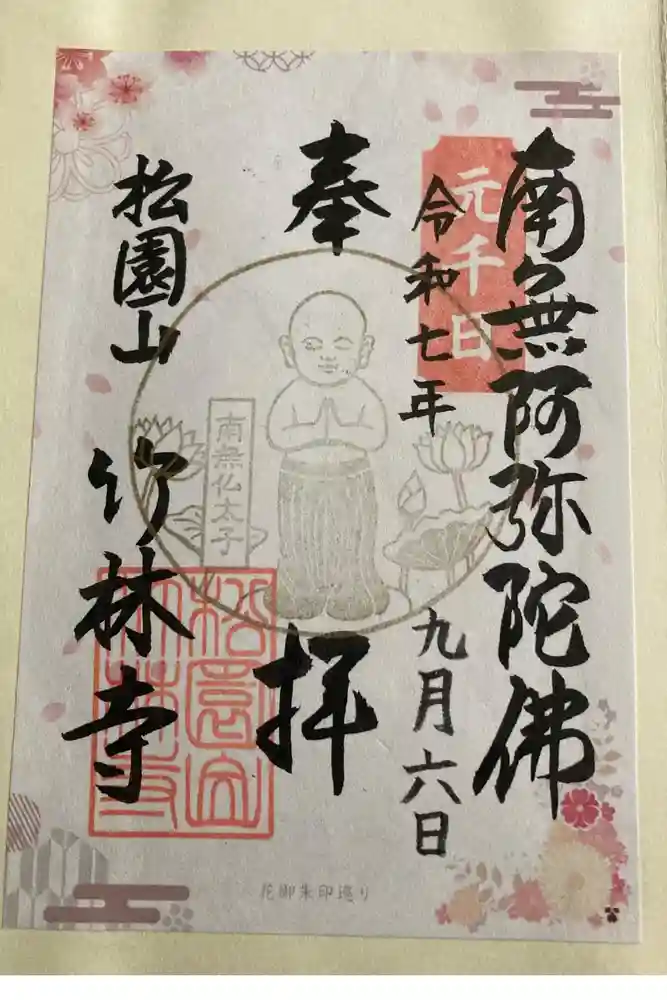 南無阿弥陀佛
元千日
令和七年
九月六日
奉拝
南無仏太子
松園山 竹林寺
松園山
竹林寺
花御朱印巡り